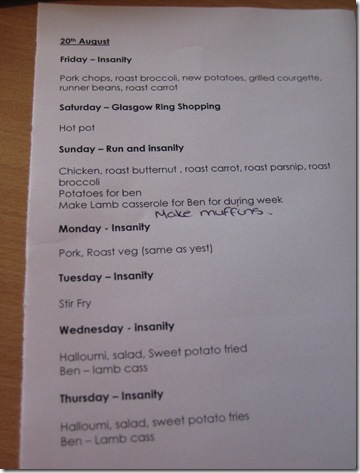 20th August
Friday – Insanity
Pork chops, roast broccoli, new potatoes, grilled courgette,
runner beans, roast carrot
Saturday – Glasgow Ring Shopping
Hot pot
Sunday – Run and insanity
Chicken, roast butternut , roast carrot, roast parsnip, roast
broccoli
Potatoes for ben
Make Lamb casserole for Ben for during week
Make muffins.
Monday - Insanity
Pork, Roast veg (same as yest)
Tuesday – Insanity
Stir Fry
Wednesday - insanity
Halloumi, salad, Sweet potato fried
Ben – lamb cass
Thursday – Insanity
Halloumi, salad, sweet potato fries
Ben – Lamb cass